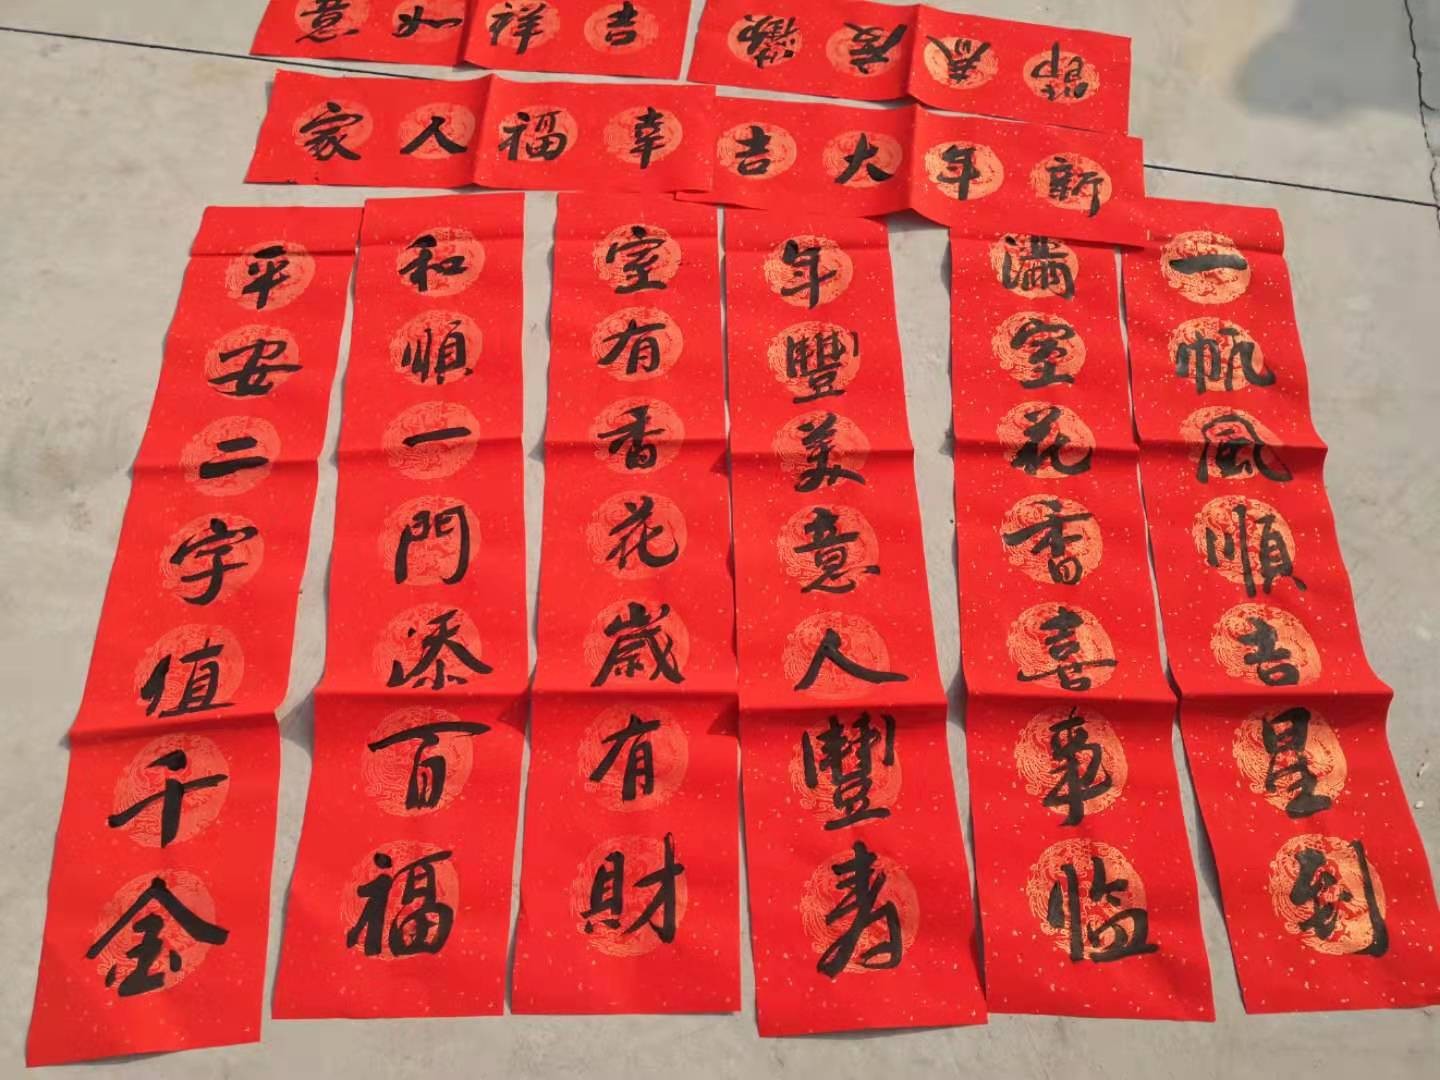 吉祥如意
歡度春節
幸福人家
新年大吉
一帆風順吉星到
滿室花香喜事临
年豐美意人豐寿
室有香花歲有財
和順一門添百福
平安二字值千金